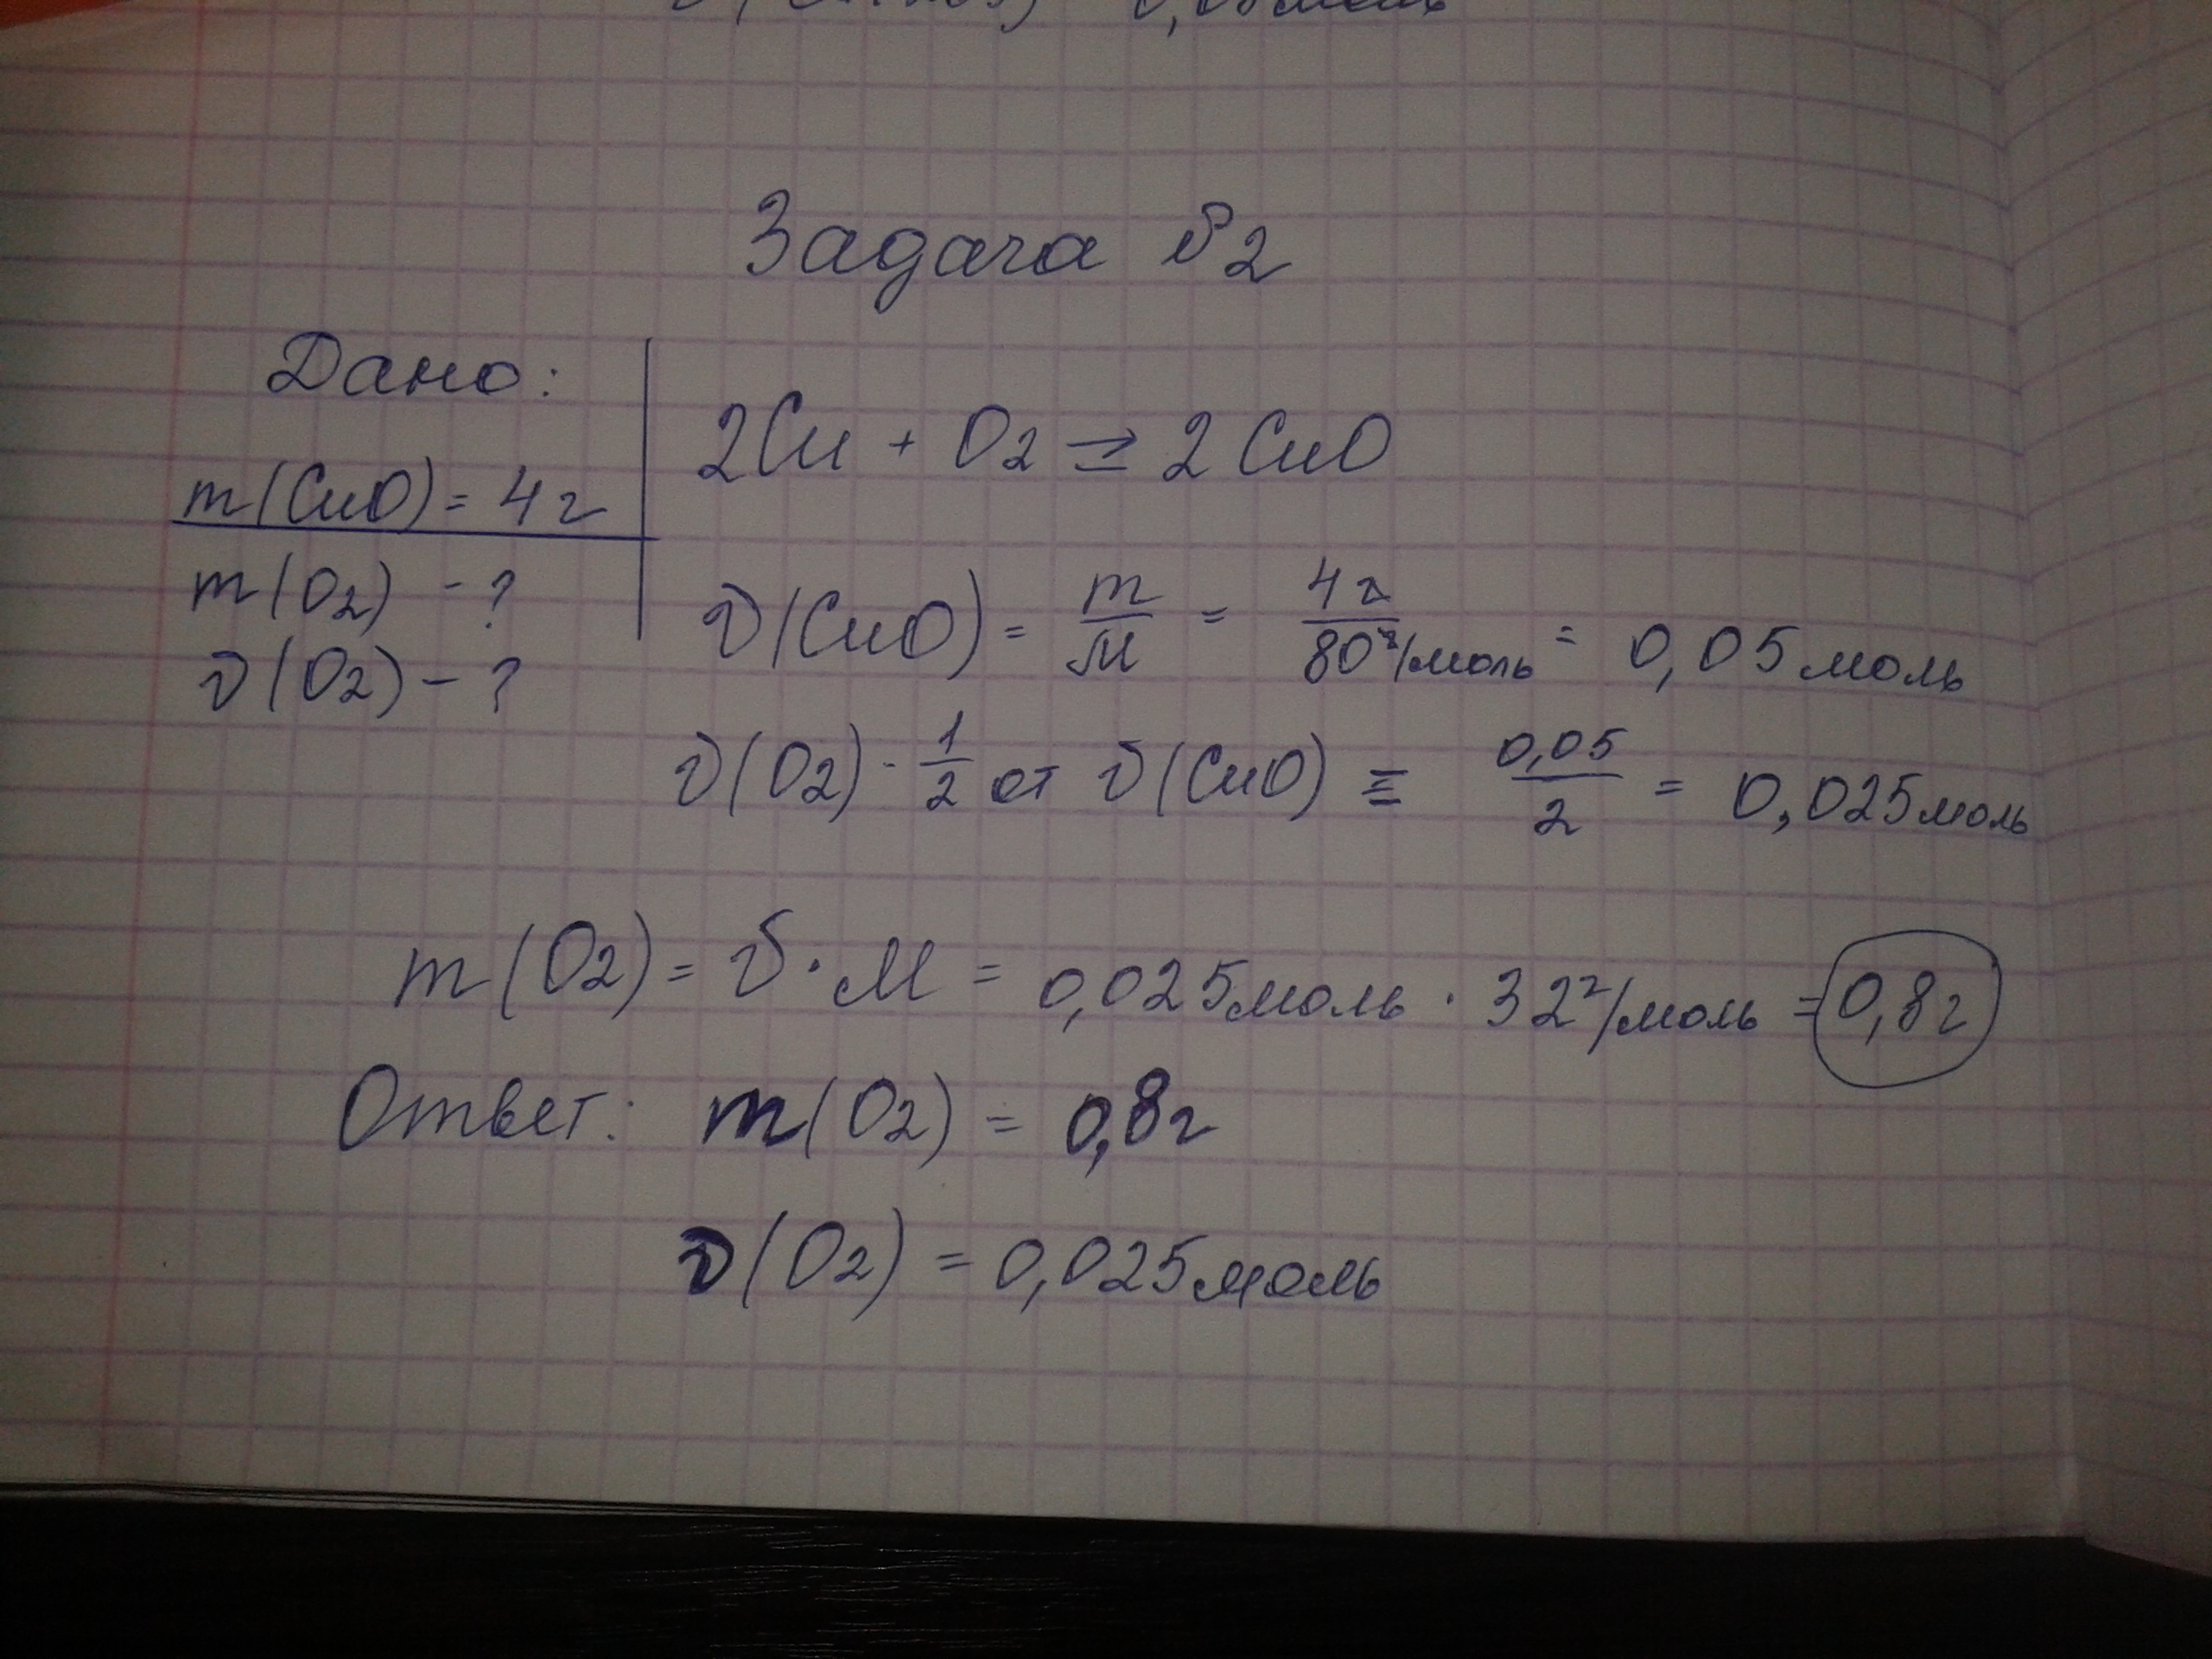 Задача №2
Дано:
m(CuO) = 4г
m(O2) - ?
ν(O2) - ?
2Cu + O2 = 2CuO
ν(CuO) = m/M = 4г/80г/моль = 0,05моль
ν(O2) - 1/2 от ν(CuO) = 0,05/2 = 0,025моль
m(O2) = ν·M = 0,025моль · 32г/моль = 0,8г
Ответ: m(O2) = 0,8г
ν(O2) = 0,025моль